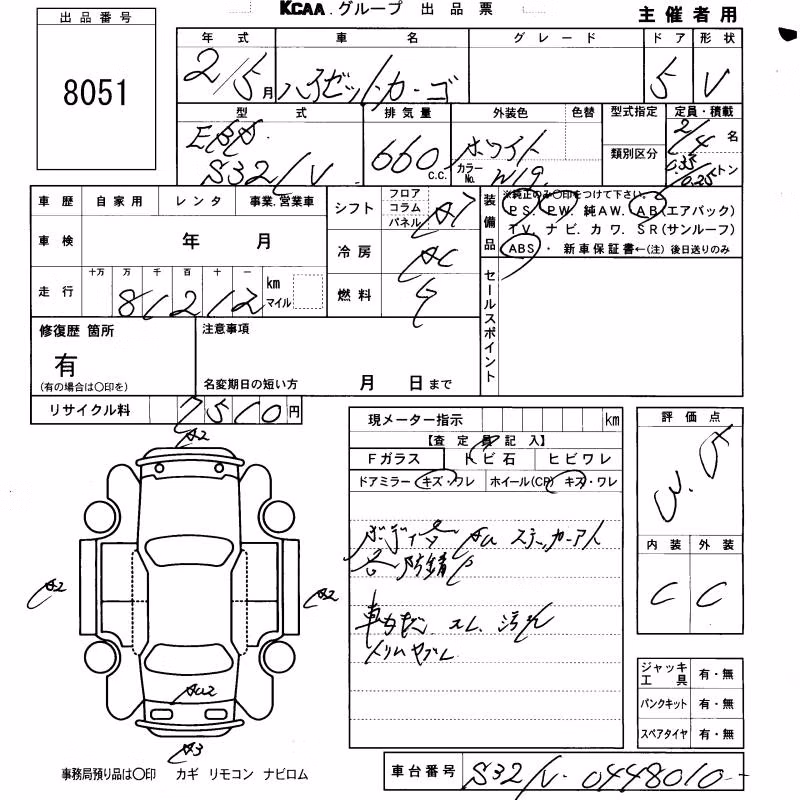 KCAA.グループ 出品票
主催者用
出品番号
8051
年式 車名 グレード ドア 形状
2/5月 ハイゼットカーゴ 5 V
型式 排気量 外装色 色替 型式指定 定員・積載
EBD 660c.c. ホワイト 2/4名
S321V カラーNo. W19 類別区分 0.35/0.25トン
車歴 自家用 レンタ 事業.営業車
シフト フロア コラム パネル AT
装備品 ※純正のみ〇印をつけて下さい。
PS. PW. 純AW. AB(エアバック)
TV. ナビ. カワ. SR(サンルーフ)
ABS・ 新車保証書←(注) 後日送りのみ
車検 年 月
冷房 AC
走行 十万 万 千 百 十 一 km マイル
81212
燃料 G
セールスポイント
修復歴 箇所
有
(有の場合は〇印を)
注意事項
名変期日の短い方 月 日まで
リサイクル料 7510円
現メーター指示 km
【査定員記入】
Fガラス トビ石 ヒビワレ
ドアミラー キズ・ワレ ホイール(CP) キズ・ワレ
ボディー AU ステッカーアト
防錆
スレ 汚れ
トリムヤブレ
評価点
内装 外装
C C
A2
A2
A2
AU2
A3
ジャッキ工具 有・無
パンクキット 有・無
スペアタイヤ 有・無
事務局預り品は〇印 カギ リモコン ナビロム
車台番号 S321V-0448010